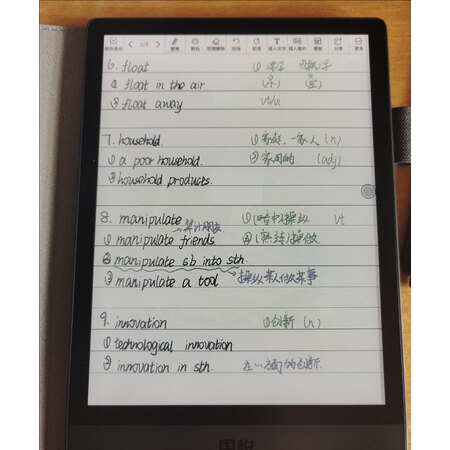 保存退出 3/3 钢笔 颜色 范围擦除 回退 前进 插入文字 插入图片 模板 分享 更多
6. float ①漂浮 ②飘浮
① float in the air (水) (空)
② float away vt/vi
7. household. ①家庭,一家人 (n)
① a poor household. ②家用的 (adj)
② household products.
8. manipulate ①(暗中)操纵 vt
算计朋友
① manipulate friends. ②(熟练)操作
② manipulate sb into sth.
操纵某人做某事
③ manipulate a tool
9. innovation ①创新 (n)
① technological innovation
② innovation in sth. 在…方面的创新.
国悦